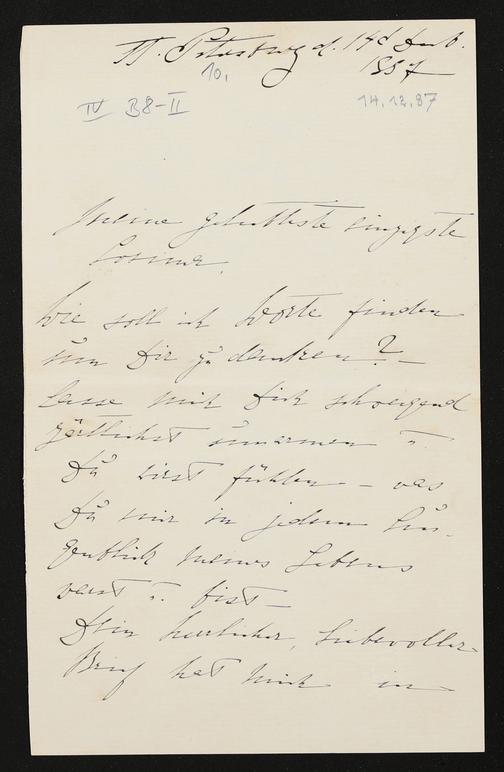 St. Petersburg d. 14t Dec.
1887
10.
IV B8-II
14.12.87
Meine geliebteste einzigste
Cosima,
Wie soll ich Worte finden
um Dir zu danken? –
lasse mich Dich schweigend
zärtlichst umarmen u.
Du wirst fühlen – was
Du mir in jedem Au-
genblick meines Lebens
warst u. bist –
Dein herrlicher, liebevoller
Brief hat mich in –